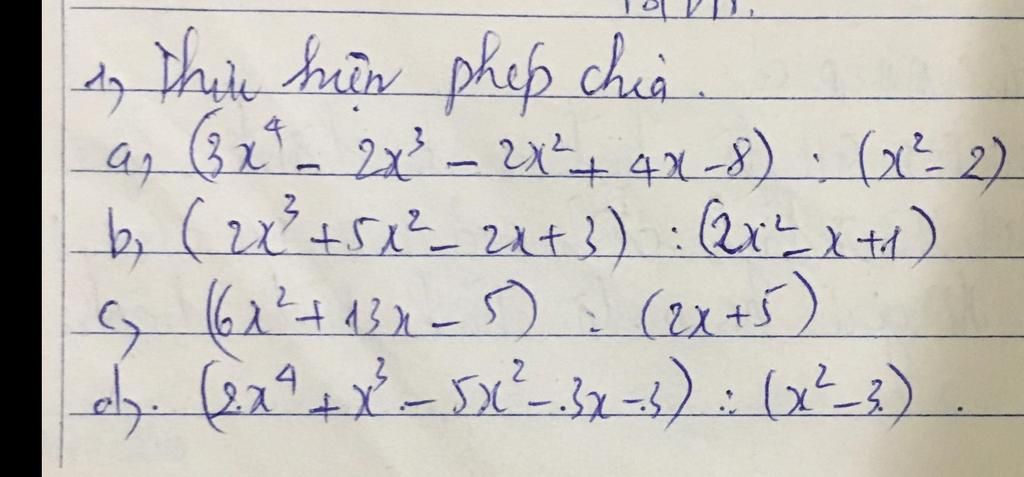 1, Thực hiện phép chia.
a, (3x⁴ - 2x³ - 2x² + 4x - 8) : (x² - 2)
b, (2x³ + 5x² - 2x + 3) : (2x² - x + 1)
c, (6x² + 13x - 5) : (2x + 5)
d, (2x⁴ + x³ - 5x² - 3x - 3) : (x² - 3).